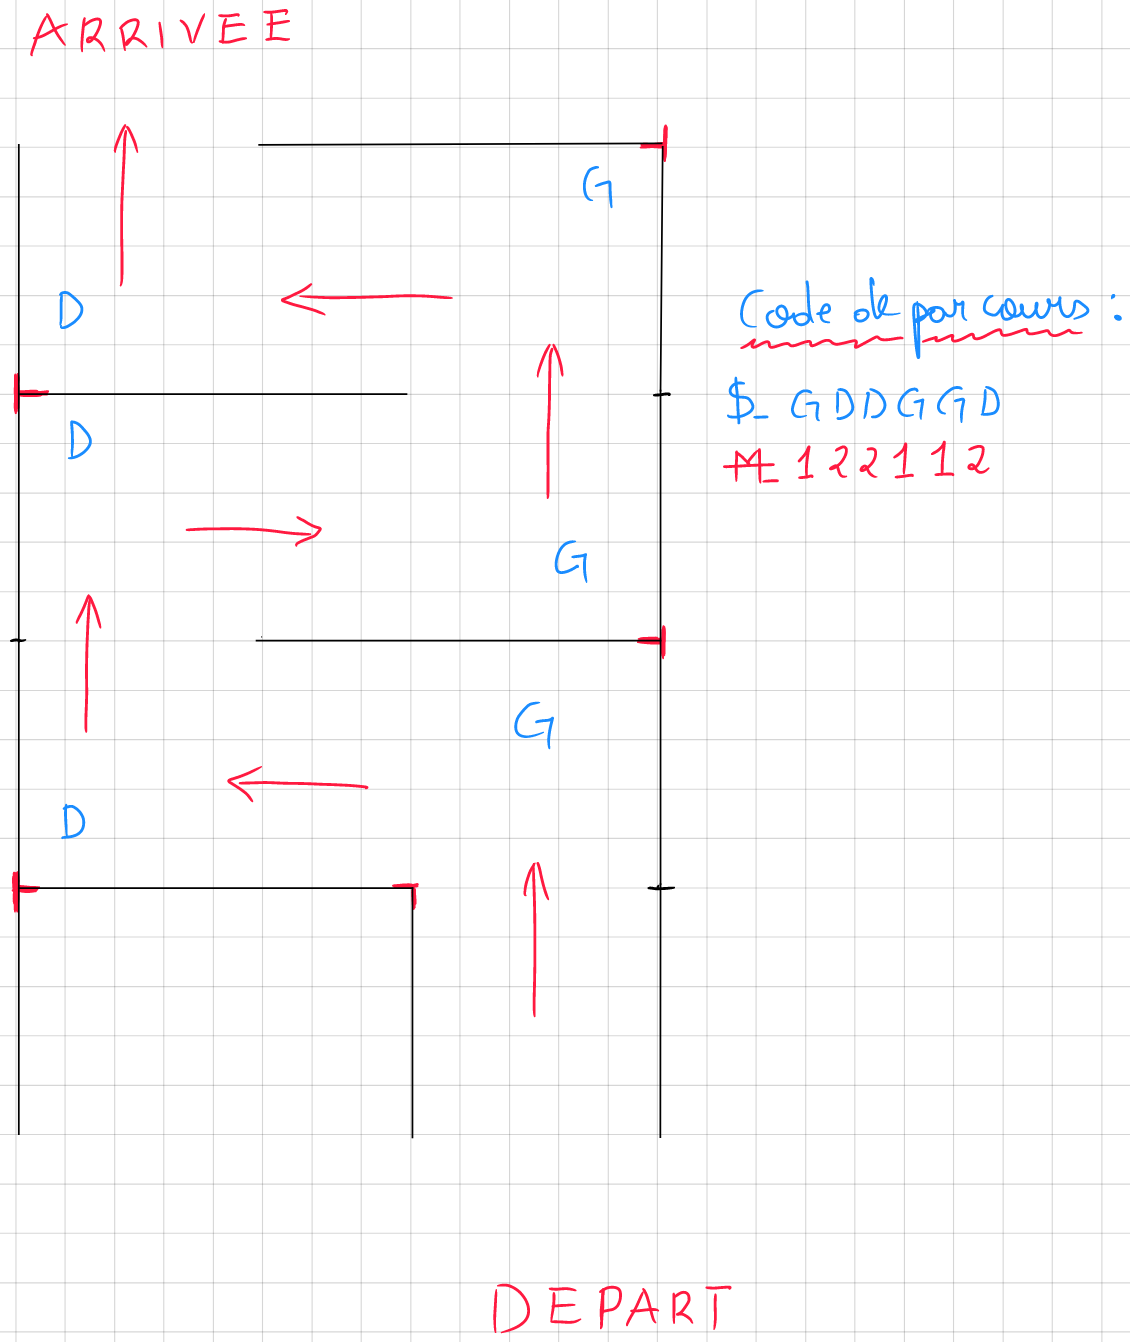 ARRIVEE
G
D
Code de parcours :
$_ GDDGGD
D
M_ 122112
G
G
D
DEPART